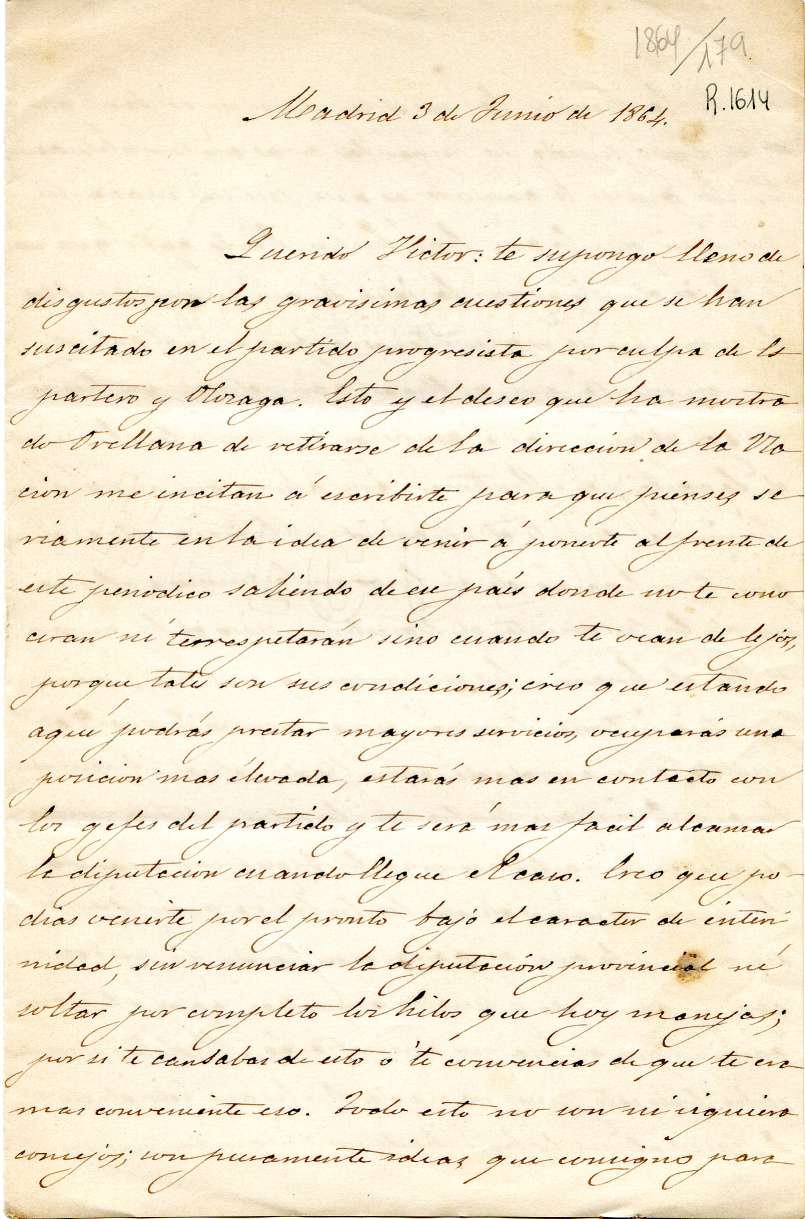 1864/179
R.1614
Madrid 3 de Junio de 1864.
Querido Victor: te supongo lleno de
disgustos por las gravisimas cuestiones que se han
suscitado en el partido progresista por culpa de Es-
partero y Olozaga. Esto y el deseo que ha mostra
do Orellana de retirarse de la direccion de la Na
cion me incitan á escribirte para que pienses se
riamente en la idea de venir á ponerte al frente de
este periodico saliendo de ese país donde no te cono
ceran ni te respetarán sino cuando te vean de lejos,
porque tales son sus condiciones; creo que estando
aquí podrás prestar mayores servicios, ocuparás una
posicion mas elevada, estarás mas en contacto con
los gefes del partido y te será mas facil alcanzar
la diputacion cuando llegue el caso. Creo que po-
dias venirte por el pronto bajo el caracter de interi
nidad, sin renunciar la diputación provincial ni
soltar por completo los hilos que hoy manejas;
por si te cansabas de esto ó te convencias de que te era
mas conveniente eso. Todo esto no son ni siquiera
consejos; son puramente ideas que consigno para